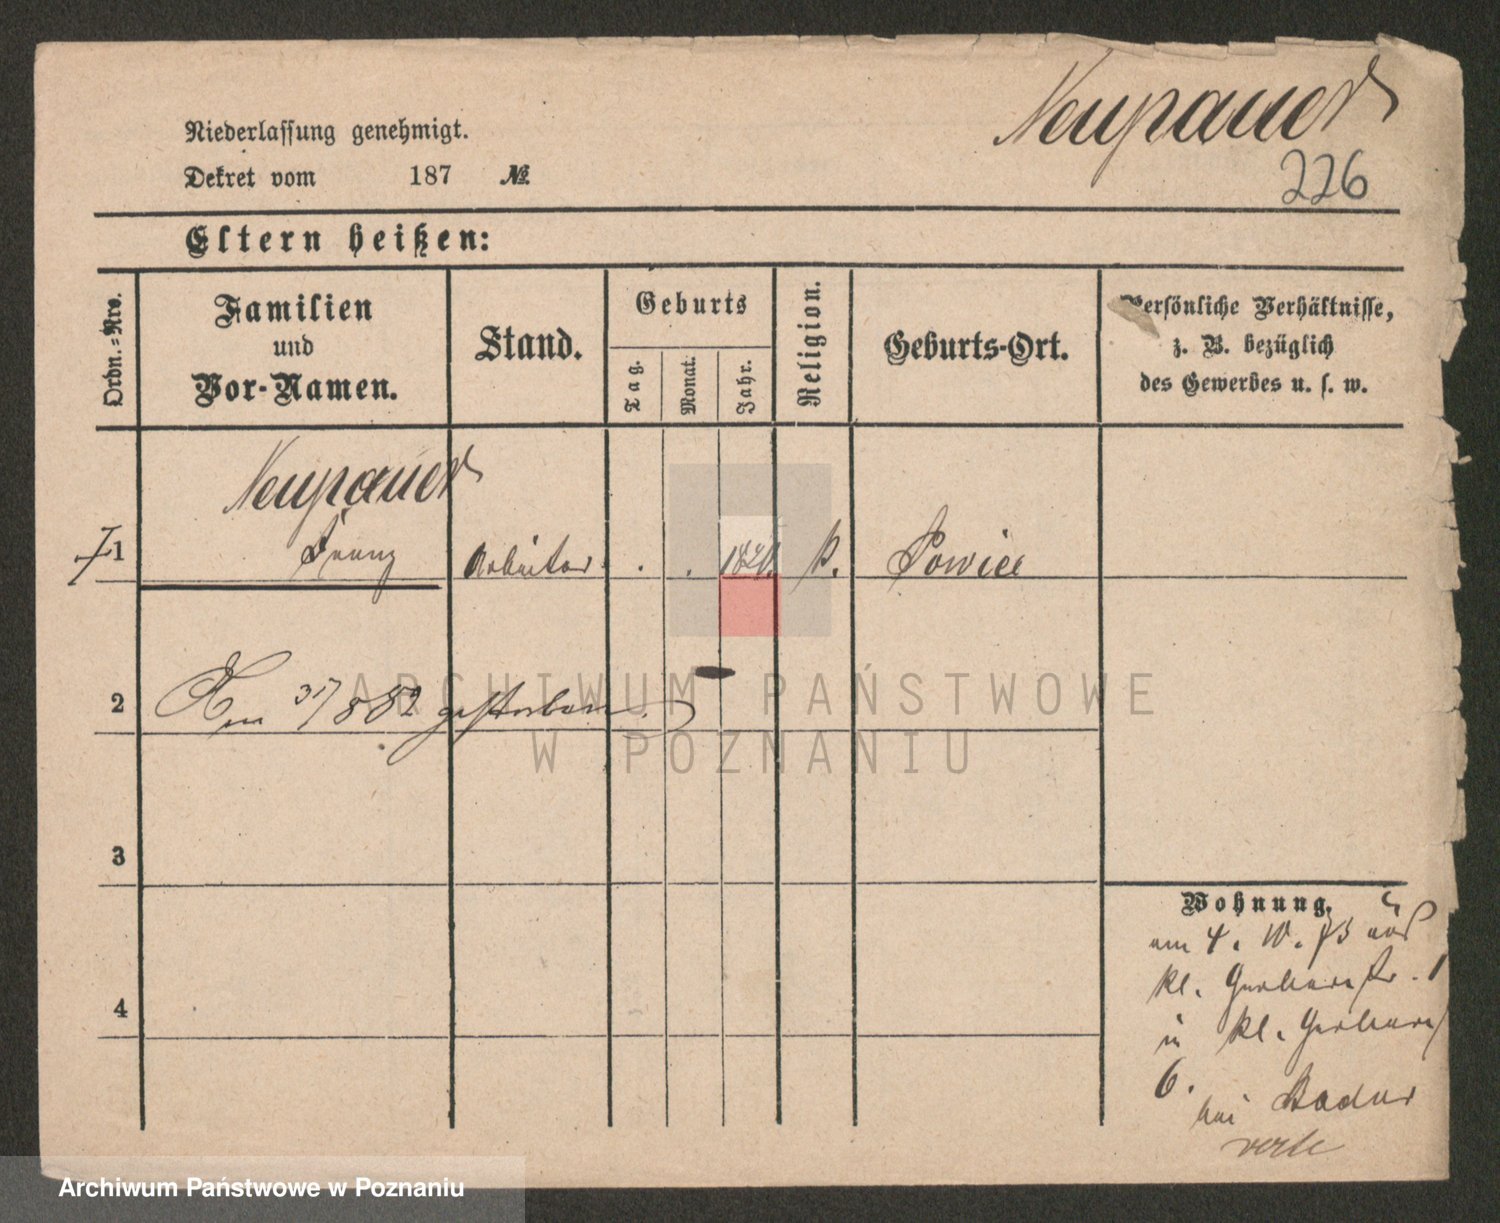 Neupauer
226
Niederlassung genehmigt.
Dekret vom 187 №
Eltern heißen:
Ordn.-Nro.
Familien
und
Vor-Namen.
Stand.
Geburts
Tag.
Monat.
Jahr.
Religion.
Geburts-Ort.
Persönliche Verhältnisse,
z. B. bezüglich
des Gewerbes u. s. w.
Neupauer
1 Franz Arbeiter k.
2 Am 31/8 82 gestorben.
3
4
Wohnung.
am 4. 10. 73 aus
kl. Gerberstr. 1
in kl. Gerberst
6.
bei
verte
ARCHIWUM PAŃSTWOWE
W POZNANIU
Archiwum Państwowe w Poznaniu